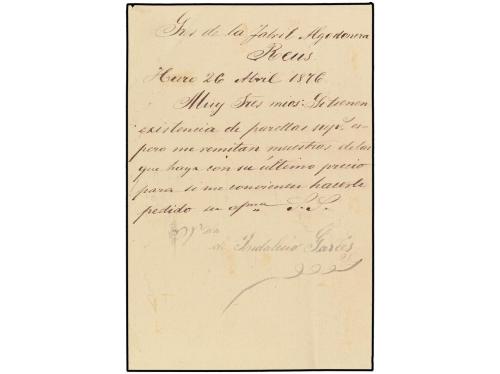 Sres de la Fabril Algodonera
Reus
Haro 26 Abril 1876
Muy Sres mios: Si tienen
existencia de es-
pero me remitan muestras de las
que haya con su último precio
para si me convienen hacerle
pedido su S.S.
de Indalecio Garcés